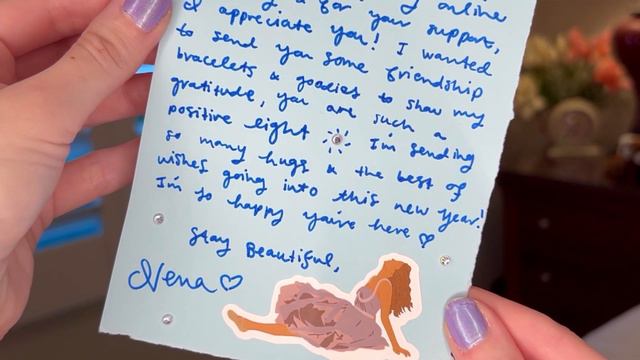 for your support,
I appreciate you! I wanted
to send you some friendship
bracelets & goodies to show my
gratitude, you are such a
positive light I'm sending
so many hugs & the best of
wishes going into this new year!
I'm so happy you're here ♡
Stay Beautiful,
Nena ♡